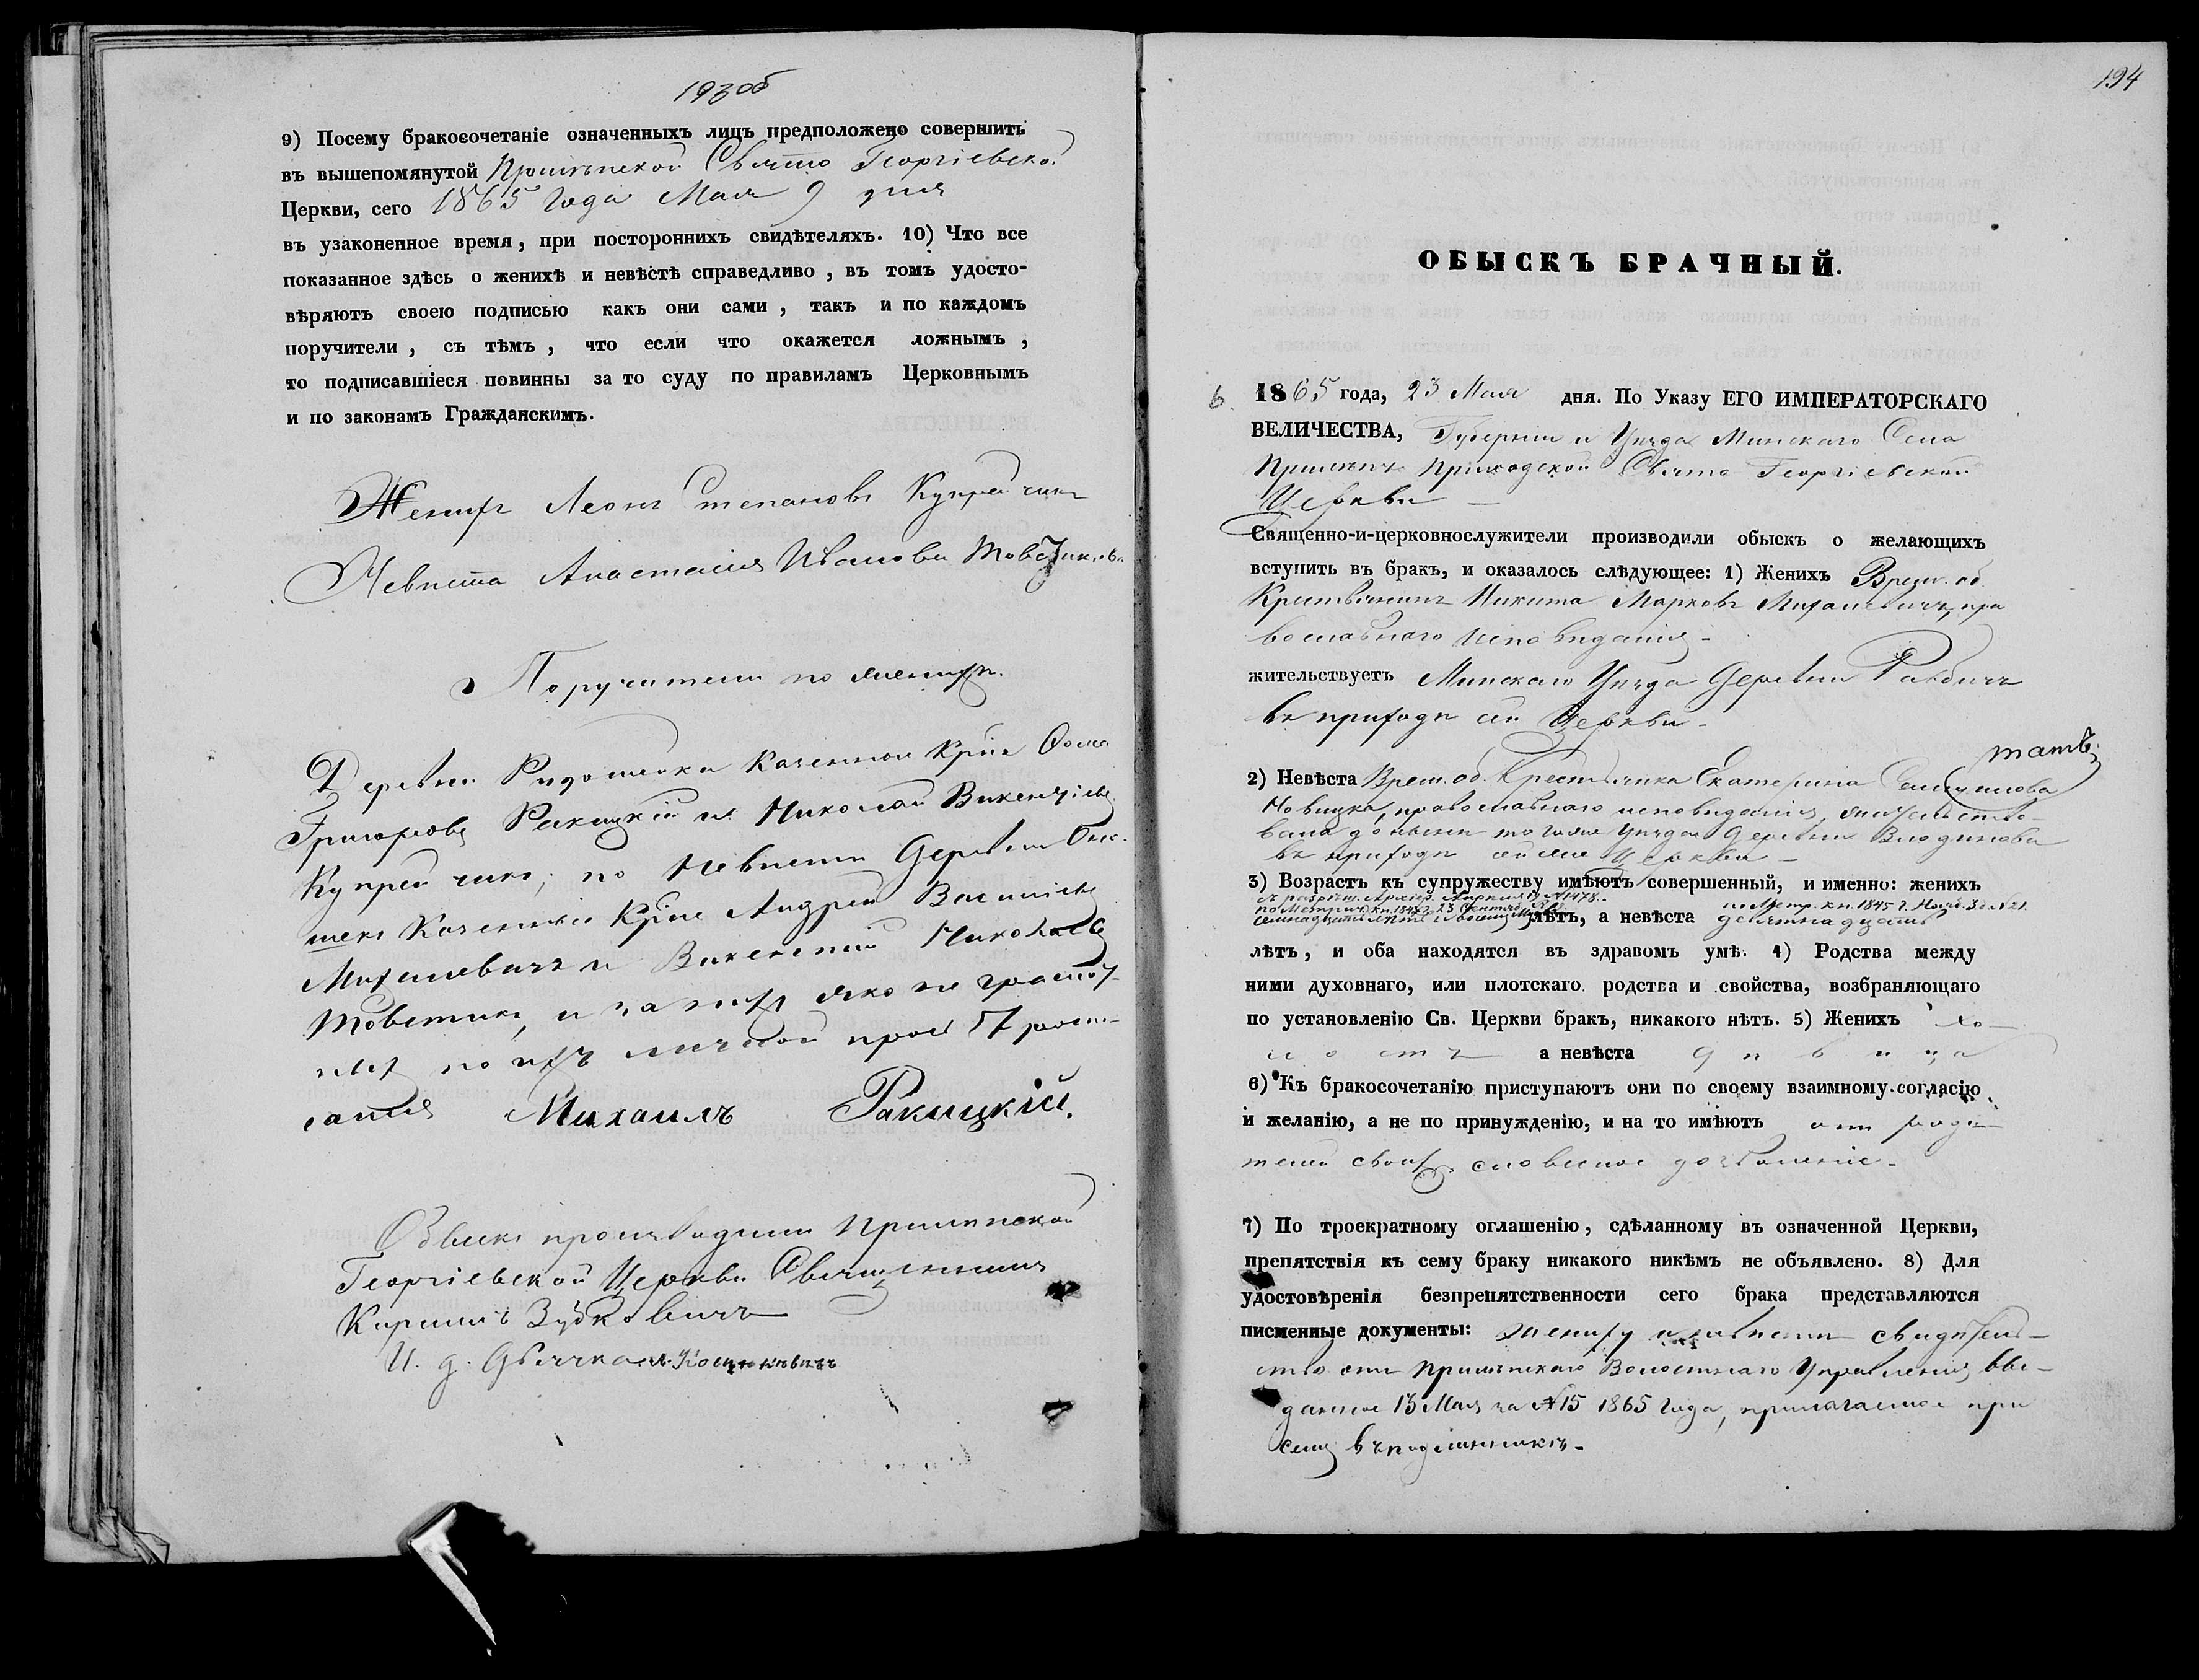 193об
9) Посему бракосочетаніе означенныхъ лицъ предположено совершить
въ вышепомянутой Прилѣпской Свято Георгіевской
Церкви, сего 1865 года Мая 9 дня
въ узаконенное время, при постороннихъ свидѣтеляхъ. 10) Что все
показанное здѣсь о женихѣ и невѣстѣ справедливо, въ томъ удосто-
вѣряютъ своею подписью какъ они сами, такъ и по каждомъ
поручители, съ тѣмъ, что если что окажется ложнымъ,
то подписавшіеся повинны за то суду по правиламъ Церковнымъ
и по законамъ Гражданскимъ.
Женихъ Леонъ Степановъ Купрейчикъ
Невѣста Анастасія Иванова
Поручители по женихѣ
Деревни Казенные Крііе Ѳома
Григорьевъ Ракицкій и Николай Викентіевъ
Купрейчикъ; по Невѣстѣ Деревни
Казенныіе Крііе Андрей Васильевъ
Михалевичъ и Викентій Николаевъ
Товстикъ, и за нихъ яко не грамот-
ныхъ по ихъ личной прозбѣ роспи-
сался Михаилъ Ракицкій.
Обыскъ производили Прилѣпской
Георгіевской Церкви Священникъ
Кириллъ Зубковичъ
И. д. Дьячка
194
ОБЫСКЪ БРАЧНЫЙ.
6. 1865 года, 23 Мая дня. По Указу ЕГО ИМПЕРАТОРСКАГО
ВЕЛИЧЕСТВА, Губерніи и Уѣзда Минскаго Села
Прилѣпъ Приходской Свято Георгіевской
Церкви
Священно-и-церковнослужители производили обыскъ о желающихъ
вступить въ бракъ, и оказалось слѣдующее: 1) Женихъ Врем. об.
Крестьянинъ Никита Марковъ Михалевичъ, пра
вославнаго исповѣданія
жительствуетъ Минскаго Уѣзда Деревни
въ приходѣ сей Церкви
2) Невѣста Врем. об. Крестьянка Екатерина
Новицка, православнаго исповѣданія, жительство-
вала донынѣ того же уѣзда Деревни
въ приходѣ сей же Церкви
3) Возрастъ къ супружеству имѣютъ совершенный, и именно: женихъ
съ разрѣш. Архіер. Апрѣля 19 №1478.
по Метр. кн. 1845 г. Нояб. 3 д. №21.
лѣтъ, а невѣста девятнадцать
лѣтъ, и оба находятся въ здравомъ умѣ. 4) Родства между
ними духовнаго, или плотскаго родства и свойства, возбраняющаго
по установленію Св. Церкви бракъ, никакого нѣтъ. 5) Женихъ хо-
лостъ а невѣста дѣвица
6) Къ бракосочетанію приступаютъ они по своему взаимному согласію
и желанію, а не по принужденію, и на то имѣютъ отъ роди-
телей своихъ словесное дозволеніе
7) По троекратному оглашенію, сдѣланному въ означенной Церкви,
препятствія къ сему браку никакого никѣмъ не объявлено. 8) Для
удостовѣренія безпрепятственности сего брака представляются
писменные документы: жениху и невѣстѣ свидѣтель-
ство отъ Прилѣпскаго Волостнаго Управленія, вы-
данное 13 Мая за №15 1865 года, прилагаемое при
семъ въ подлинникѣ